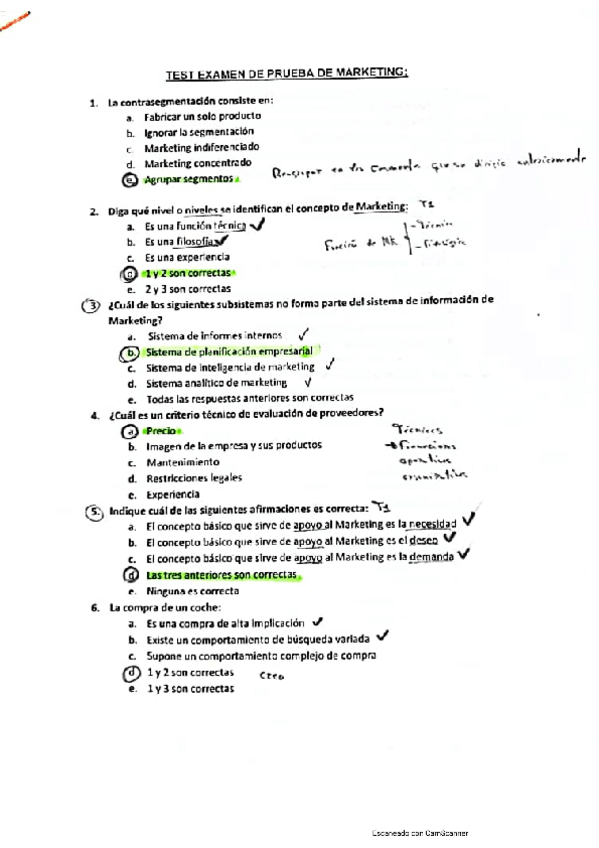 TEST EXAMEN DE PRUEBA DE MARKETING:
1. La contrasegmentación consiste en:
a. Fabricar un solo producto
b. Ignorar la segmentación
c. Marketing indiferenciado
d. Marketing concentrado
e. Agrupar segmentos
2. Diga qué nivel o niveles se identifican el concepto de Marketing: T1
a. Es una función técnica
b. Es una filosofía
c. Es una experiencia
Función de MK
d. 1 y 2 son correctas
e. 2 y 3 son correctas
3. ¿Cuál de los siguientes subsistemas no forma parte del sistema de información de
Marketing?
a. Sistema de informes internos
b. Sistema de planificación empresarial
c. Sistema de inteligencia de marketing
d. Sistema analítico de marketing
e. Todas las respuestas anteriores son correctas
4. ¿Cuál es un criterio técnico de evaluación de proveedores?
a. Precio
b. Imagen de la empresa y sus productos
c. Mantenimiento
d. Restricciones legales
e. Experiencia
Técnicos
5. Indique cuál de las siguientes afirmaciones es correcta: T1
a. El concepto básico que sirve de apoyo al Marketing es la necesidad
b. El concepto básico que sirve de apoyo al Marketing es el deseo
c. El concepto básico que sirve de apoyo al Marketing es la demanda
d. Las tres anteriores son correctas
e. Ninguna es correcta
6. La compra de un coche:
a. Es una compra de alta implicación
b. Existe un comportamiento de búsqueda variada
c. Supone un comportamiento complejo de compra
d. 1 y 2 son correctas Creo
e. 1 y 3 son correctas
Escaneado con CamScanner